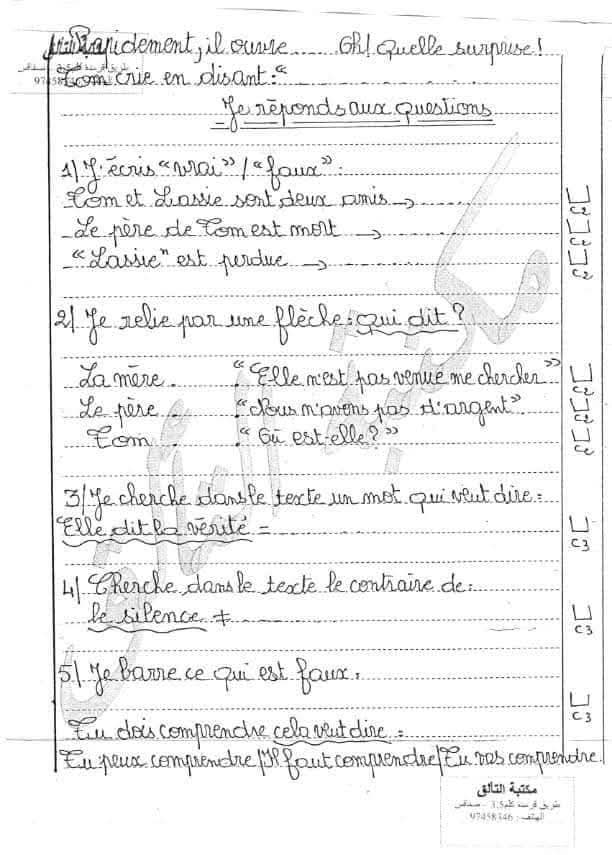 Rapidement, il ouvre ...... Oh! Quelle surprise!
Tom crie en disant: "
Je réponds aux questions
1/ J'écris "vrai" / "faux":
Tom et Lassie sont deux amis →
C2
Le père de Tom est mort →
C2
"Lassie" est perdue →
C2
2/ Je relie par une flèche: qui dit?
La mère . . "Elle n'est pas venue me chercher"
C2
Le père . . "Nous n'avons pas d'argent"
C2
Tom . . "Où est-elle?"
C2
3/ Je cherche dans le texte un mot qui veut dire:
Elle dit la vérité =
C3
4/ Cherche dans le texte le contraire de:
le silence ≠
C3
5/ Je barre ce qui est faux.
C3
Tu dois comprendre cela veut dire:
Tu peux comprendre / Il faut comprendre / Tu vas comprendre.
مكتبة التألق
طريق قرمدة كلم3.5 - صفاقس
الهاتف: 97458346